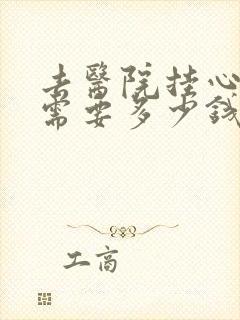 去醫院挂心
需要多少錢
工商